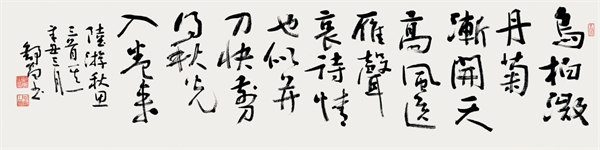 烏桕微
丹菊
漸開天
高風送
雁聲
哀詩情
也似并
刀快剪
得秋光
入卷來
陸游秋思
三首之一
辛丑三月